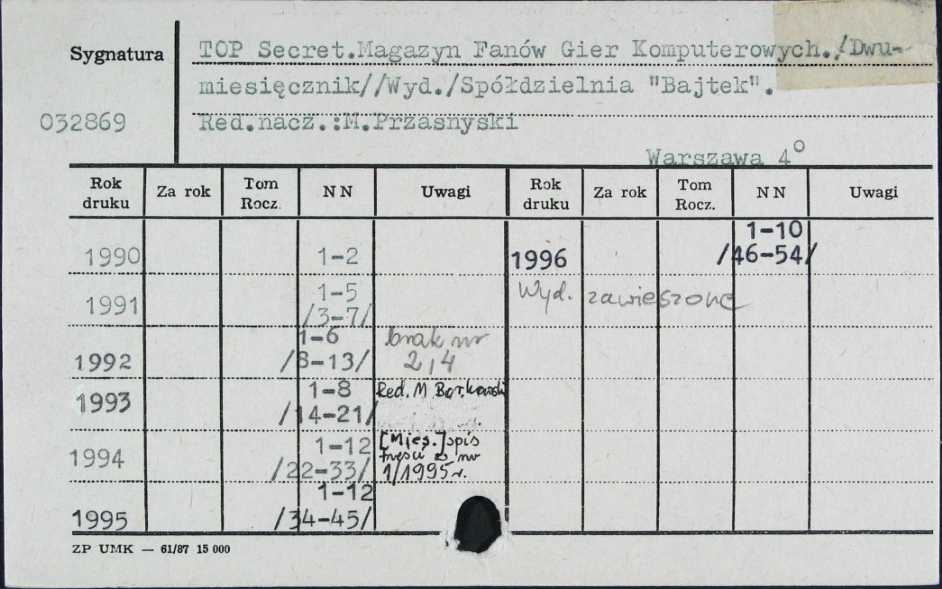 Sygnatura
TOP Secret.Magazyn Fanów Gier Komputerowych./Dwu-
miesięcznik//Wyd./Spółdzielnia "Bajtek".
032869
Red.nacz.:M.Przasnyski
Warszawa 4°
Rok druku Za rok Tom Rocz. N N Uwagi Rok druku Za rok Tom Rocz. N N Uwagi
1990 1-2
1991 1-5 /3-7/
1992 1-6 /8-13/ brak nr 2,4
1993 1-8 /14-21/ Red. M Borkowski
1994 1-12 /22-33/ [Mies.] spis treści w nr 1/1995r.
1995 1-12 /34-45/
1996 1-10 /46-54/
Wyd. zawieszone
ZP UMK — 61/87 15 000